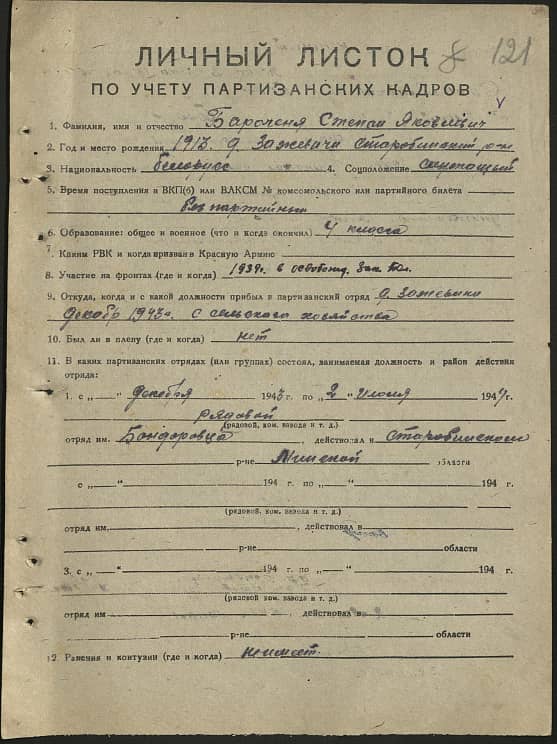 ЛИЧНЫЙ ЛИСТОК 121
ПО УЧЕТУ ПАРТИЗАНСКИХ КАДРОВ
1. Фамилия, имя и отчество Бараченя Степан Яковлівич
2. Год и место рождения 1913 д. Зажевичи Старобинский р-н
3. Национальность белорусс 4. Соцположение служащий
5. Время поступления в ВКП(б) или ВЛКСМ № комсомольского или партийного билета
безпартийный
6. Образование: общее и военное (что и когда окончил) 4 класса
7. Каким РВК и когда призван в Красную Армию
8. Участие на фронтах (где и когда) 1939г. в освобожд. Зап.
9. Откуда, когда и с какой должности прибыл в партизанский отряд д. Зажевичи
декабрь 1943г. с сельского хозяйства
10. Был ли в плену (где и когда) нет
11. В каких партизанских отрядах (или группах) состоял, занимаемая должность и район действия
отряда:
1. с „ — “ декабря 1943 г. по „ 2 “ июля 1944 г.
рядовой
(рядовой, ком. взвода и т. д.)
отряд им. Бондоровца, действовал в Старобинском
р-не Минской области
с „ — “ 194 г. по „ — “ 194 г.
(рядовой, ком. взвода и т. д.)
отряд им. , действовал в
р-не области
3. с „ — “ 194 г. по „ — “ 194 г.
(рядовой, ком. взвода и т. д.)
отряд им , действовал в
р-не области
12. Ранения и контузии (где и когда) не имеет.